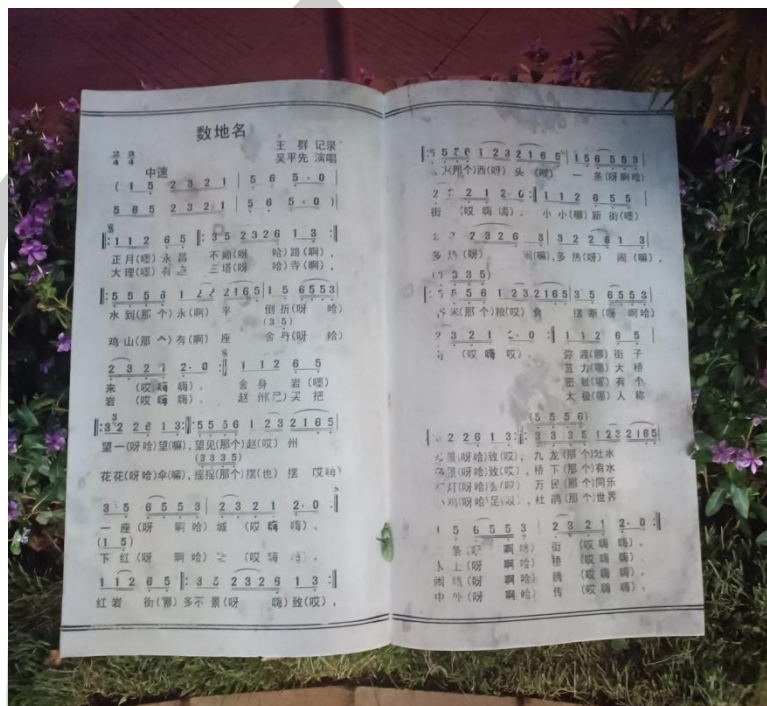 数地名
王群 记录
吴平先 演唱
2/4 3/4
中速
( 1 5 2 3 2 1 | 5 6 5·0 |
5 6 5 2 3 2 1 | 5 6 5·0 )|
‖: 1 1 2 6 5 ‖: 3 5 2 3 2 6 1 3 :‖
正月(喽)永昌 不闹(呀 哈)踏(啊),
大理(喽)有 三塔(呀 哈)寺(啊),
5 5 5 6 1 2 2 1 6 5 | 1 5 6 5 5 3 |
水到(那个)永(啊)平 倒折(呀 哈)
(3 5)
鸡山(那个)有(啊)座 舍丹(呀 哈)
2 3 2 1 2·0 :‖ 1 1 2 6 5
来 (哎嗨嗨)。 舍身 岩(喽)
岩 (哎嗨嗨)。 赵州 买把
‖: 3 2 2 6 1 3 :‖: 5 5 5 5 1 2 3 2 1 6 5 |
望一(呀哈)望(嘛),望见(那个)赵(哎)州
(3 3 3 5)
花花(呀哈)伞(嘛),摇摇(那个)摆(也)摆 哎嗨
3 5 6 5 5 3 | 2 3 2 1 2·0 :‖
一座(呀 啊哈)城 (哎嗨嗨)。
(1 5)
下红(呀 啊哈) (哎嗨 )。
1 1 2 6 5 ‖: 3 5 2 3 2 6 1 3 :‖
红岩 街(哪)多不景(呀 嗨)致(哎),
5 5 6 1 2 3 2 1 6 5 | 1 5 6 5 5 3 |
(那个)西(呀)头 一条(呀啊哈)
2 2 1 2·0 :‖ 1 1 2 6 5 5 |
街 (哎嗨嗨)。 小小(哪)新街(喽)
2 3 2 6 3 | 3 2 2 6 1 3 |
多热(呀) 闹(嘛),多热(呀)闹(嘛),
3 3 5)
5 6 5 6 1 2 3 2 1 6 5 | 3 5 6 5 5 3 |
米(那个)粮(哎)食 摆断(呀 啊哈)
2 3 2 1 2·0 :‖ 1 1 2 6 5
(哎嗨哎) 弥渡(哪)街子
蓝力(哪)大桥
密祉(哪)有个
太极(哪)人称
(5 5 5 6)
2 2 6 1 3 :‖: 3 3 3 5 1 2 3 2 1 6 5
景(呀哈)致(哎), 九龙(那个)吐水
景(呀哈)致(哎), 桥下(那个)有水
灯(呀哈)会(哎) 万民(那个)同乐
鸡(呀哈)足(哎), 杜鹃(那个)世界
1 5 6 5 5 3 | 2 3 2 1 2·0 :‖
条(呀 啊哈) 街 (哎嗨嗨)。
上(呀 啊哈) 桥 (哎嗨嗨)。
闹(呀 啊哈) 腾 (哎嗨嗨)。
中外(呀 啊哈) 传 (哎嗨嗨)。